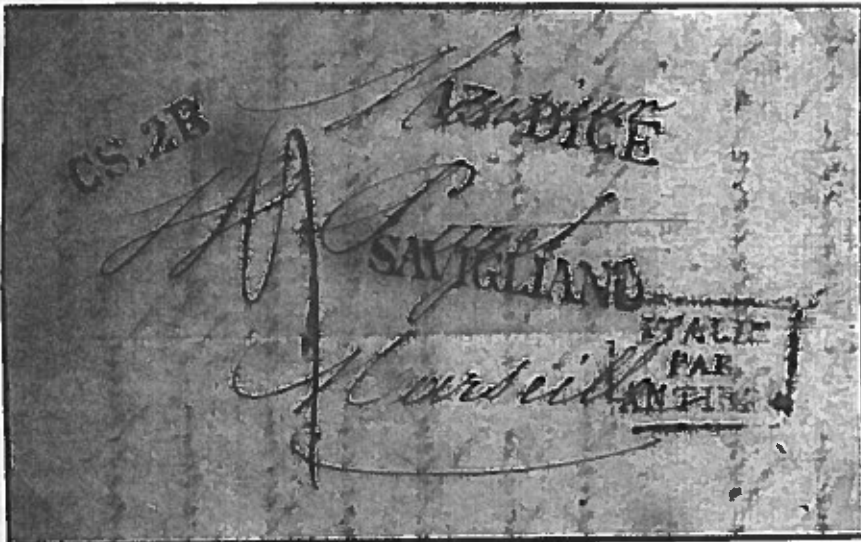 Monsieur
CS.2R DICE
SAVIGLIANO
ITALIE
PAR
ANTIBES
Marseille